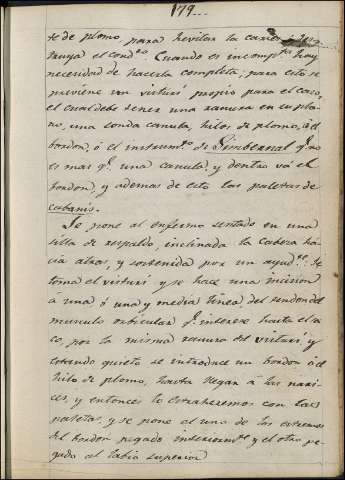 179...
se de plomo, para hevitar la caries
truya el cond.to. Cuando es incomp.ta hay
necesidad de hacerla completa; para esto se
previene un visturi propio para el caso,
el cual debe tener una ranura en su pla-
no, una sonda canula, hilos de plomo, ó el
bordon, ó el instrum.to de Gimbernal q.e no
es mas q.e una canula, y dentro vá el
bordon, y ademas de esto las paletas de
cabanis.
Se pone al enfermo sentado en una
silla de respaldo, inclinada la cabeza há-
cia atras, y sostenida por un ayud.te. Se
toma el visturi y se hace una incision
á una ó una y media linea, del tendon del
musculo orbicular q.e interese hasta el sa-
co, por la misma ranura del visturi, y
estando quieto se introduce un bordon ó el
hilo de plomo, hasta llegar á las nari-
ces, y entonces lo estraheremos con las
paletas, y se pone al uno de los estremos
del bordon pegado interiorm.te y el otro pe-
gado al labio superior